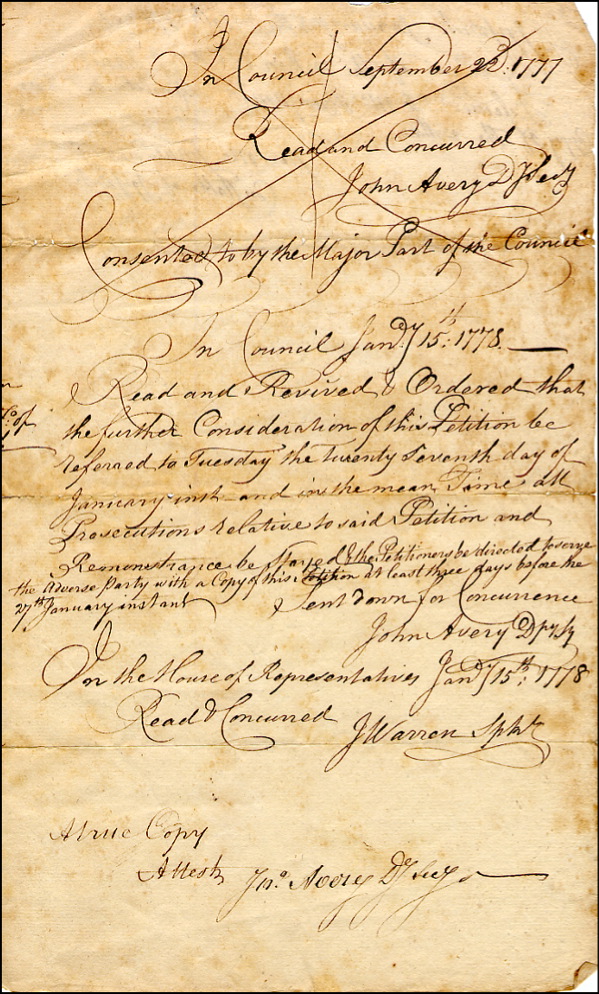 In Council September 22d. 1777
Read and Concurred
John Avery Dy Secy
Consented to by the Major Part of the Council
In Council Jany 15th: 1778
Read and Revived & Ordered that
the further Consideration of this Petition be
referred to Tuesday the twenty Seventh day of
January inst and in the mean Time all
Prosecutions relative to said Petition and
Remonstrance be Stayed & the Petitioners be directed to serve
the Adverse Party with a Copy of this Petition at least three days before the
27th January instant
Sent down for Concurrence
John Avery Dpy Sy
In the House of Representatives Jany 15th: 1778
Read & Concurred
J Warren Spkr
of
A true Copy
Attest
Jno Avery Dy Secy